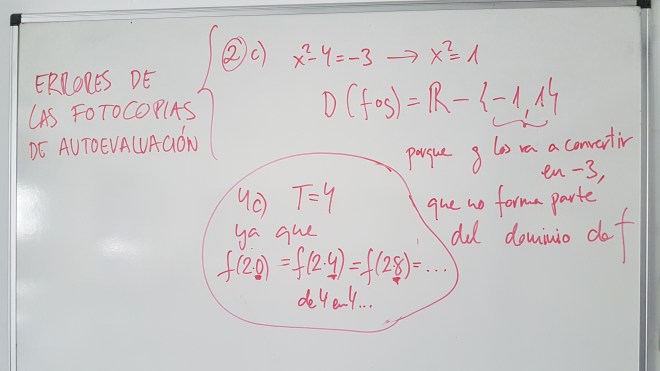 ERRORES DE
LAS FOTOCOPIAS
DE AUTOEVALUACIÓN
2 c) x²-4=-3 → x²=1
D(fog)=R-{-1,1}
porque g los va a convertir
en -3,
que no forma parte
del dominio de f
4c) T=4
ya que
f(2·0)=f(2·4)=f(2·8)=...
de 4 en 4...